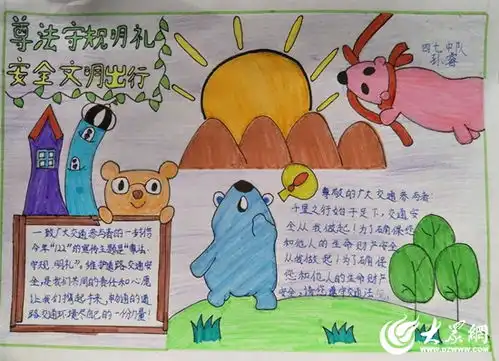 尊法守规明礼
安全文明出行
四七中队
孙睿
一致广大交通参与者的一封信
今年"122"的宣传主题是"尊法、
守规、明礼"。维护道路交通安
全是我们共同的责任和心愿
让我们携起手来,为畅通的道
路交通环境尽自己的一份力量!
尊敬的广大交通参与者:
千里之行始于足下,交通安
全从我做起!为了确保您
和他人的生命财产安全
从我做起!为了确保
您和他人的生命财产
安全,请您遵守交通法
大众网
www.dzwww.com